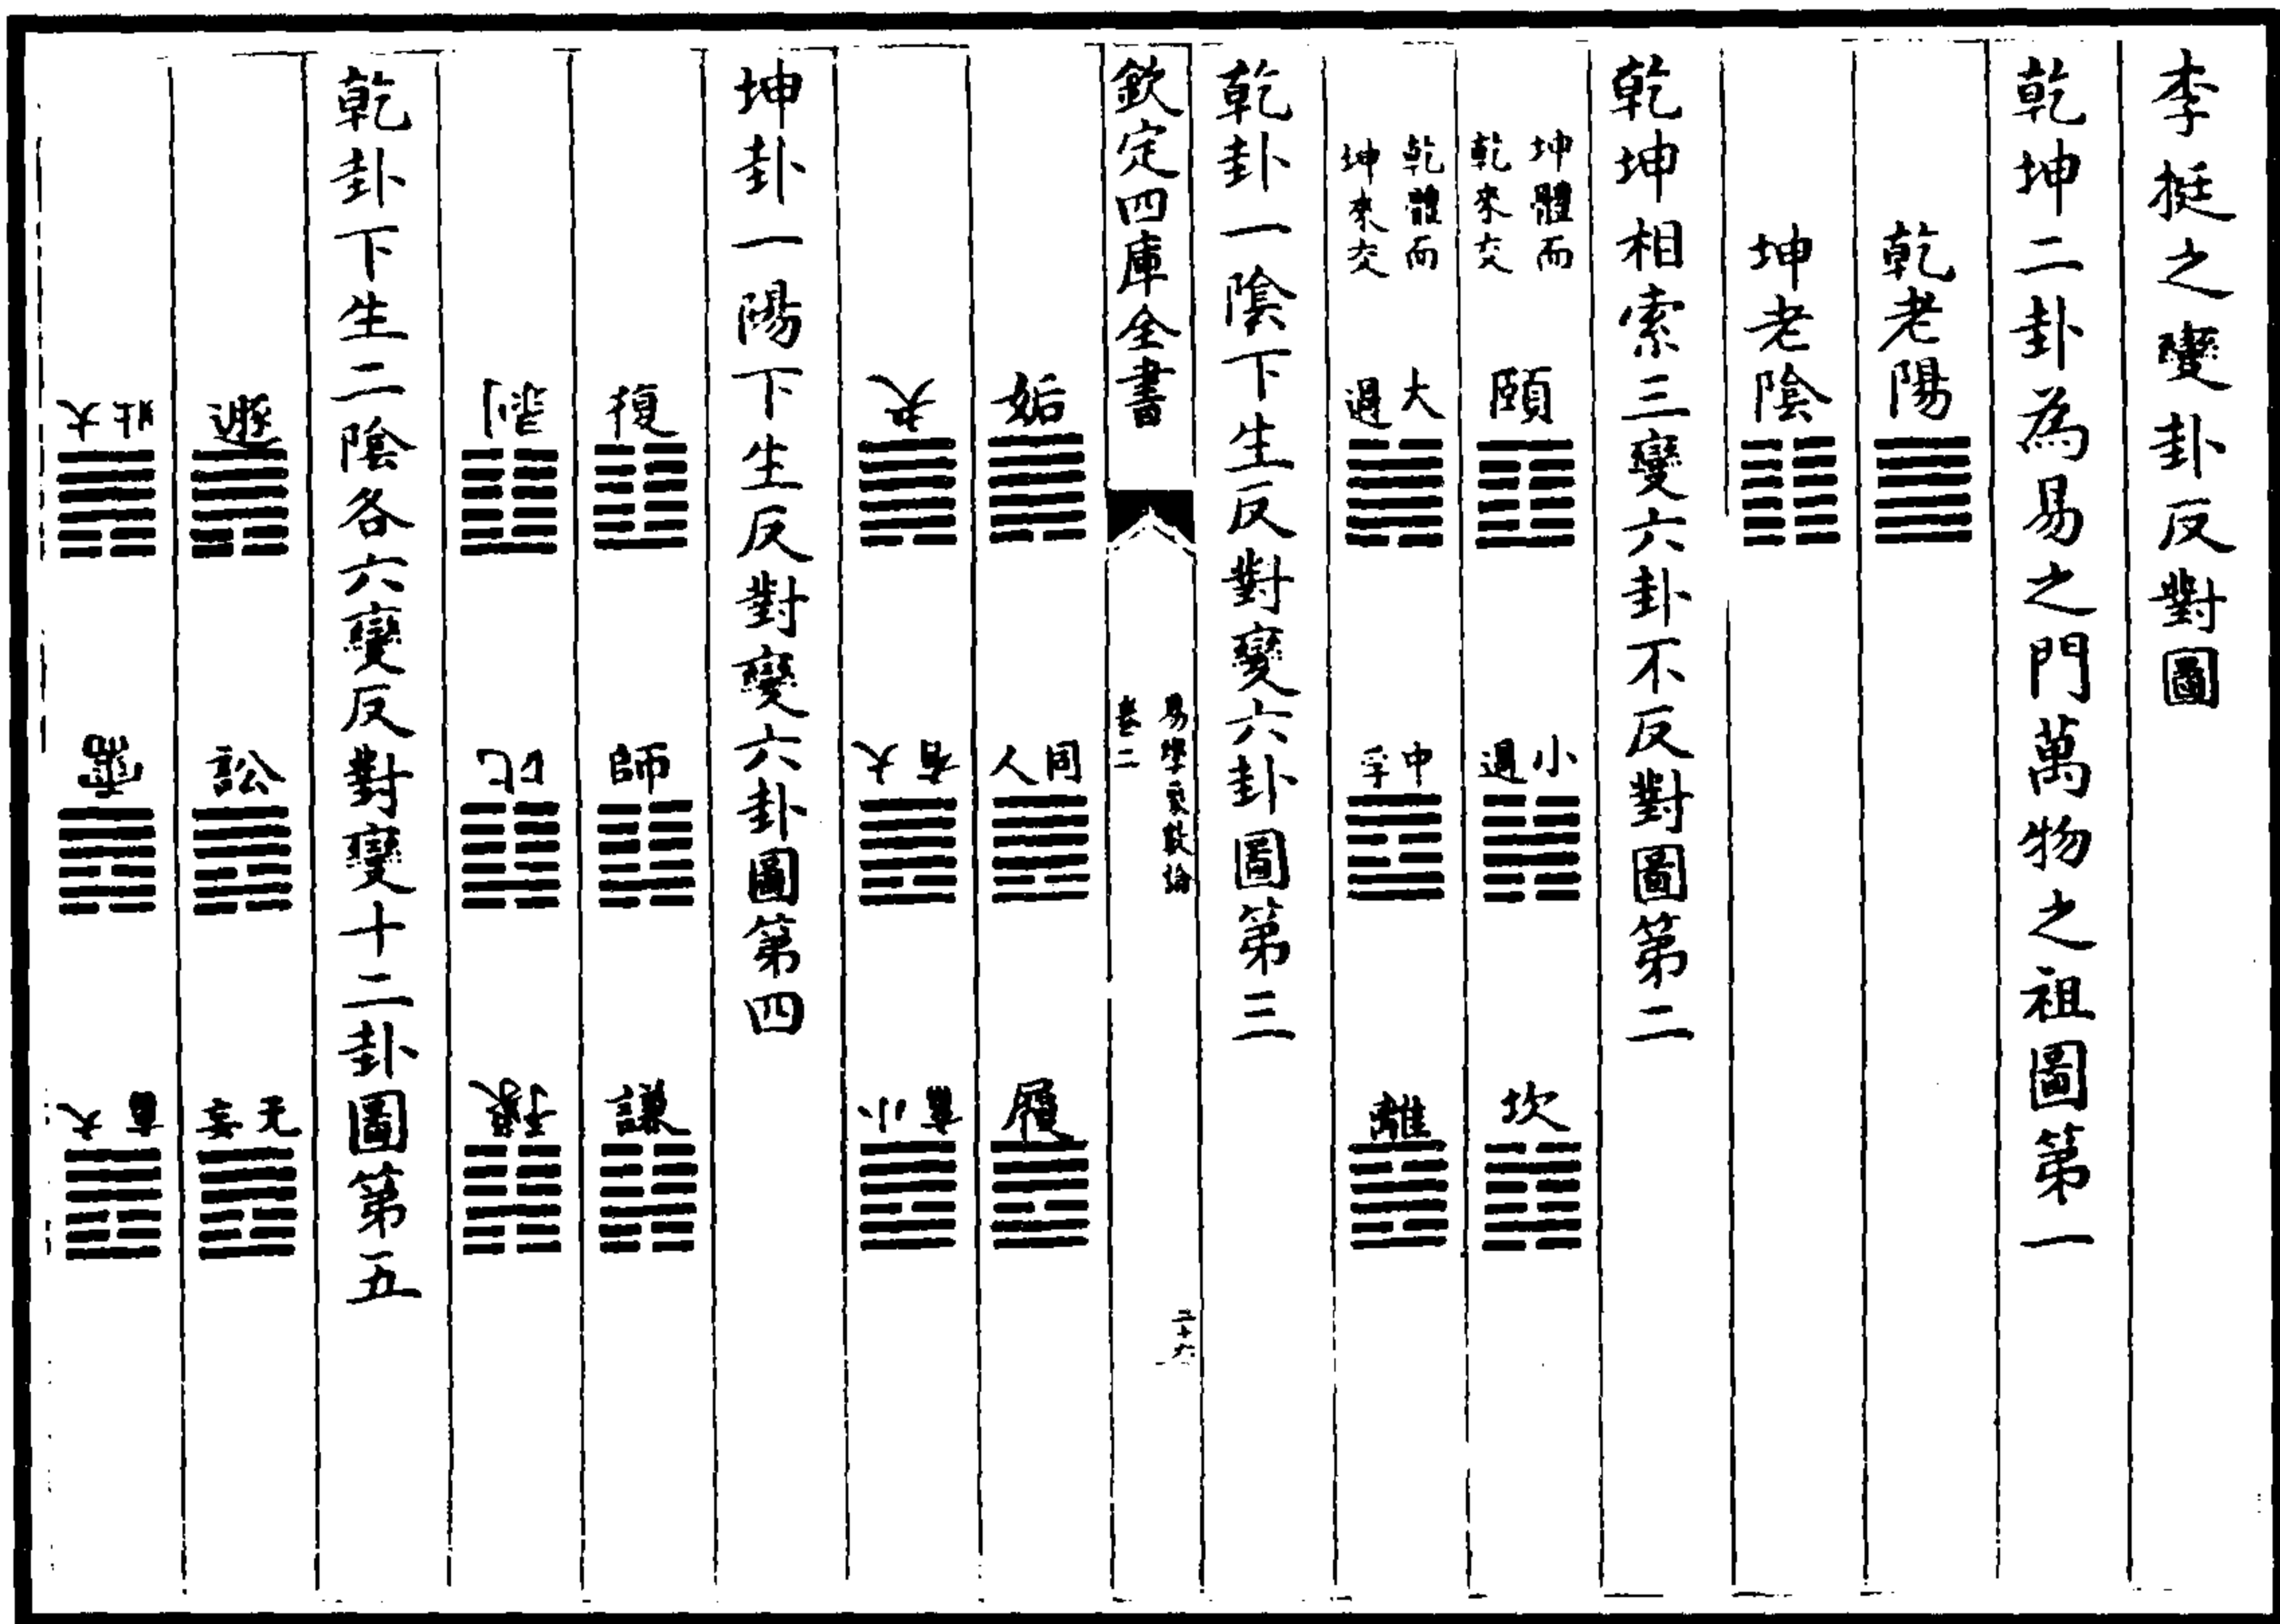 李挺之變卦反對圖
乾坤二卦為易之門萬物之祖圖第一
乾老陽
坤老陰
乾坤相索三變六卦不反對圖第二
坤體而乾來交 頤 小過 坎
乾體而坤來交 大過 中孚 離
乾卦一陰下生反對變六卦圖第三
欽定四庫全書 易學象數論 卷二
姤 同人 履
夬 大有 小畜
坤卦一陽下生反對變六卦圖第四
復 師 謙
剝 比 豫
乾卦下生二陰各六變反對變十二卦圖第五
遯 訟 无妄
大壯 需 大畜